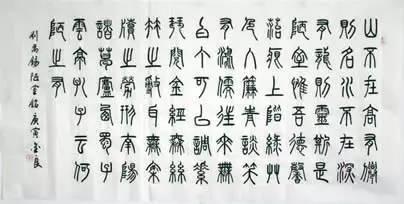 山不在高有僊
則名水不在深
有龍則靈斯是
陋室惟吾德馨
苔痕上階綠艸
色入簾青談笑
有鴻儒往來無
白丁可以調素
琴閱金經無絲
竹之亂耳無案
牘之勞形南陽
諸葛廬西蜀子
雲亭孔子云何
陋之有
劉禹錫陋室銘庚寅